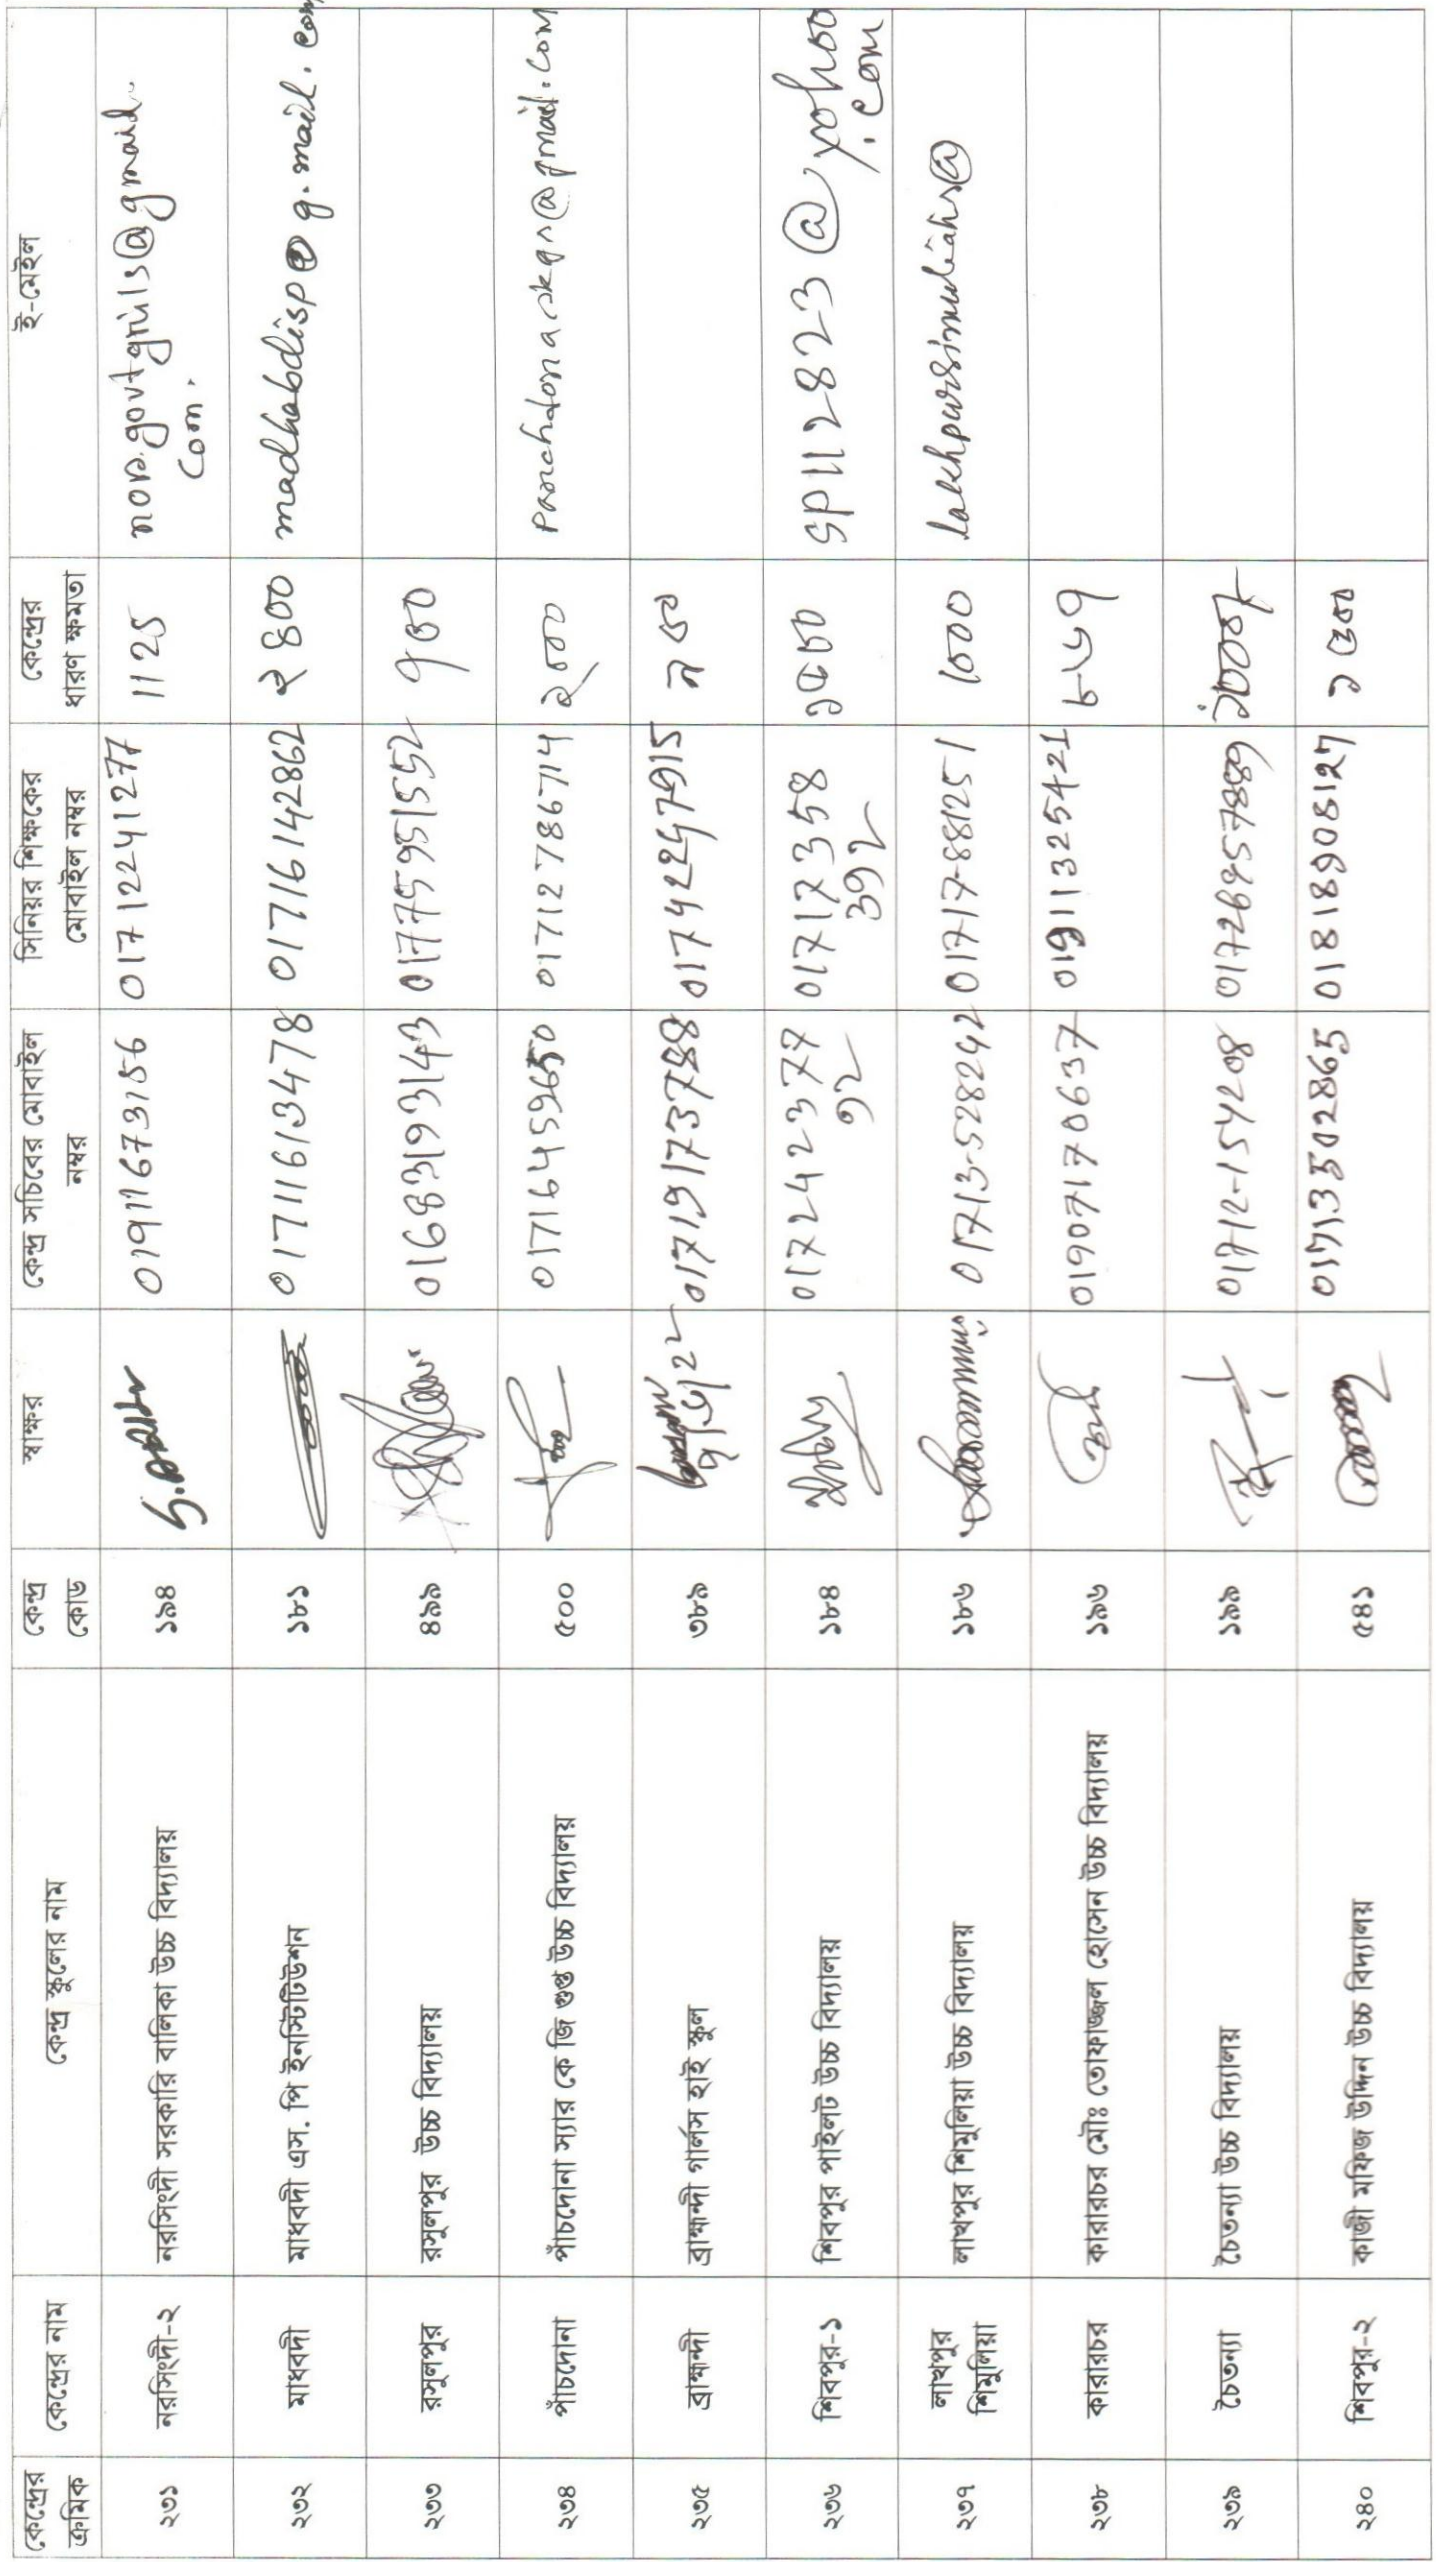 কেন্দ্রের ক্রমিক কেন্দ্রের নাম কেন্দ্র স্কুলের নাম কেন্দ্র কোড স্বাক্ষর কেন্দ্র সচিবের মোবাইল নম্বর সিনিয়র শিক্ষকের মোবাইল নম্বর কেন্দ্রের ধারণ ক্ষমতা ই-মেইল
২৩১ নরসিংদী-২ নরসিংদী সরকারি বালিকা উচ্চ বিদ্যালয় ১৯৪ 01911673156 01712241277 1125
com.
২৩২ মাধবদী মাধবদী এস. পি ইনস্টিটিউশন ১৮১ 01711613478 01716142862 ২৪০০ madhabdisp@g.mail.com
২৩৩ রসুলপুর রসুলপুর উচ্চ বিদ্যালয় ৪৯৯ 01683193143 01775951552 ৭৫০
২৩৪ পাঁচদোনা পাঁচদোনা স্যার কে জি গুপ্ত উচ্চ বিদ্যালয় ৫০০ 01712786714 ২০০০
২৩৫ ব্রাহ্মন্দী ব্রাহ্মন্দী গার্লস হাই স্কুল ৩৮৯ 01719173788 ৯৫০
২৩৬ শিবপুর-১ শিবপুর পাইলট উচ্চ বিদ্যালয় ১৮৪ 017242377 01717358 ১৫০০ sp112823@yahoo
92 392 .com
২৩৭ লাখপুর শিমুলিয়া লাখপুর শিমুলিয়া উচ্চ বিদ্যালয় ১৮৬ 01713-528242 01717-881251 1000 lakhpursimuliahs@
২৩৮ কারারচর কারারচর মৌঃ তোফাজ্জল হোসেন উচ্চ বিদ্যালয় ১৯৬ 01907170637 01911325421 ৮৬৭
২৩৯ চৈতন্যা চৈতন্যা উচ্চ বিদ্যালয় ১৯৯ 01712-154208
২৪০ শিবপুর-২ কাজী মফিজ উদ্দিন উচ্চ বিদ্যালয় ৫৪১ 01713502865 01818908127 ১৩০০